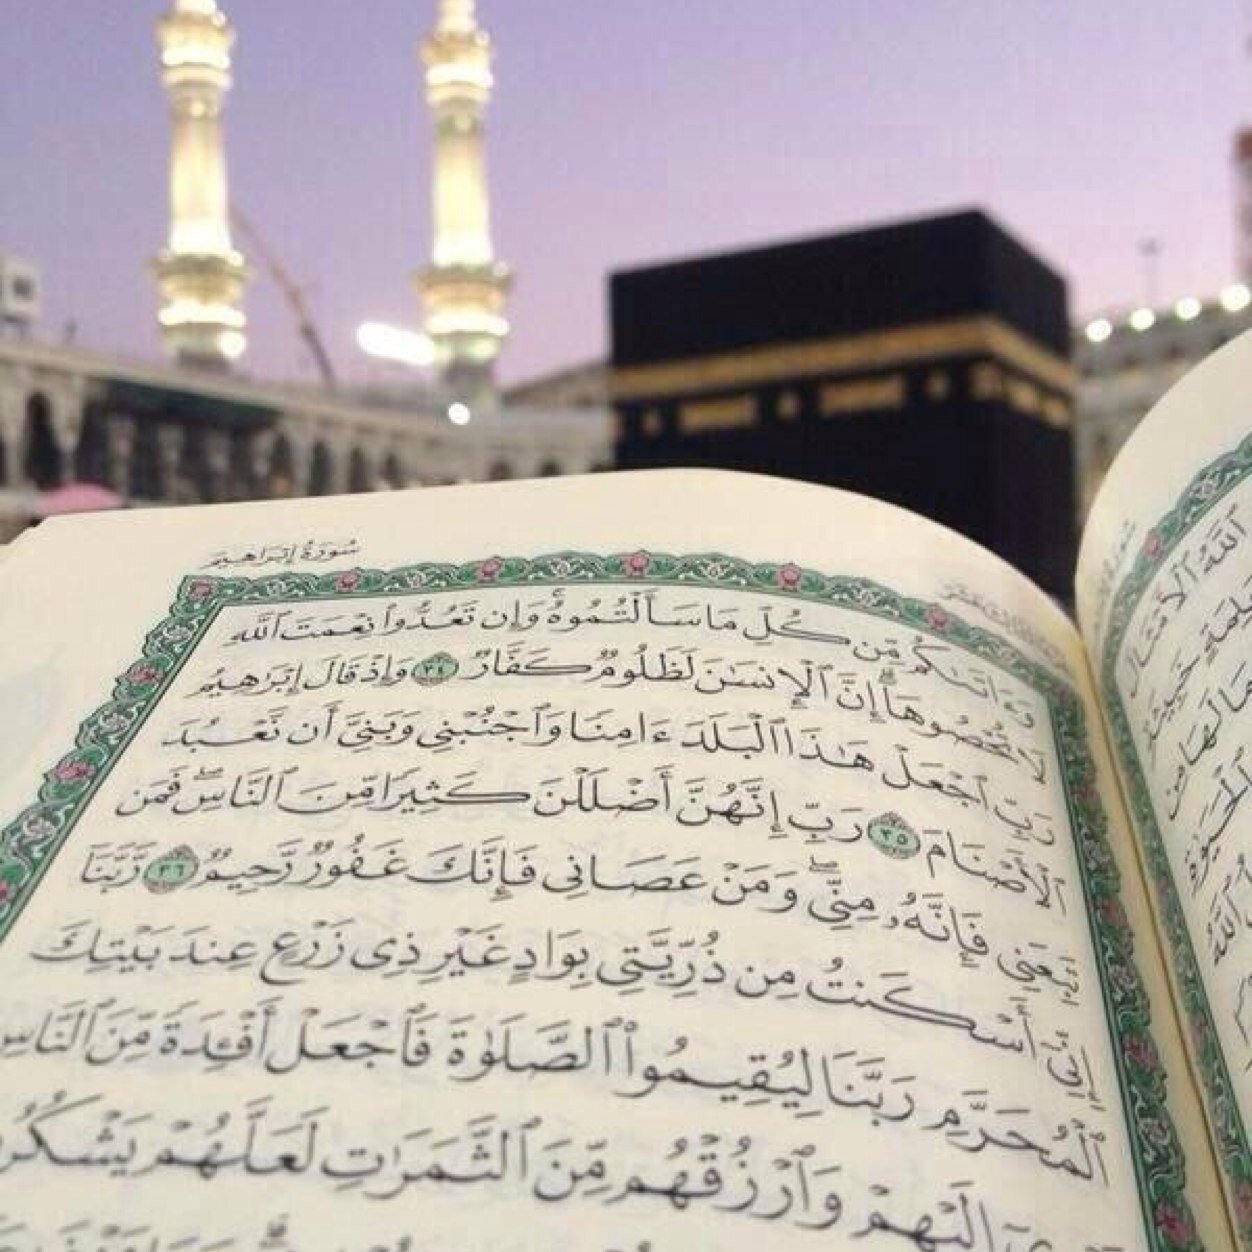 سُورَةُ إِبْرَاهِيمَ
وَءَاتَىٰكُم مِّن كُلِّ مَا سَأَلْتُمُوهُ ۚ وَإِن تَعُدُّوا۟ نِعْمَتَ ٱللَّهِ
لَا تُحْصُوهَآ ۗ إِنَّ ٱلْإِنسَـٰنَ لَظَلُومٌ كَفَّارٌ ٣٤ وَإِذْ قَالَ إِبْرَٰهِيمُ
رَبِّ ٱجْعَلْ هَـٰذَا ٱلْبَلَدَ ءَامِنًا وَٱجْنُبْنِى وَبَنِىَّ أَن نَّعْبُدَ
ٱلْأَصْنَامَ ٣٥ رَبِّ إِنَّهُنَّ أَضْلَلْنَ كَثِيرًا مِّنَ ٱلنَّاسِ ۖ فَمَن
تَبِعَنِى فَإِنَّهُۥ مِنِّى ۖ وَمَنْ عَصَانِى فَإِنَّكَ غَفُورٌ رَّحِيمٌ ٣٦ رَّبَّنَآ
إِنِّىٓ أَسْكَنتُ مِن ذُرِّيَّتِى بِوَادٍ غَيْرِ ذِى زَرْعٍ عِندَ بَيْتِكَ
ٱلْمُحَرَّمِ رَبَّنَا لِيُقِيمُوا۟ ٱلصَّلَوٰةَ فَٱجْعَلْ أَفْـِٔدَةً مِّنَ ٱلنَّاسِ
إِلَيْهِمْ وَٱرْزُقْهُم مِّنَ ٱلثَّمَرَٰتِ لَعَلَّهُمْ يَشْكُرُ